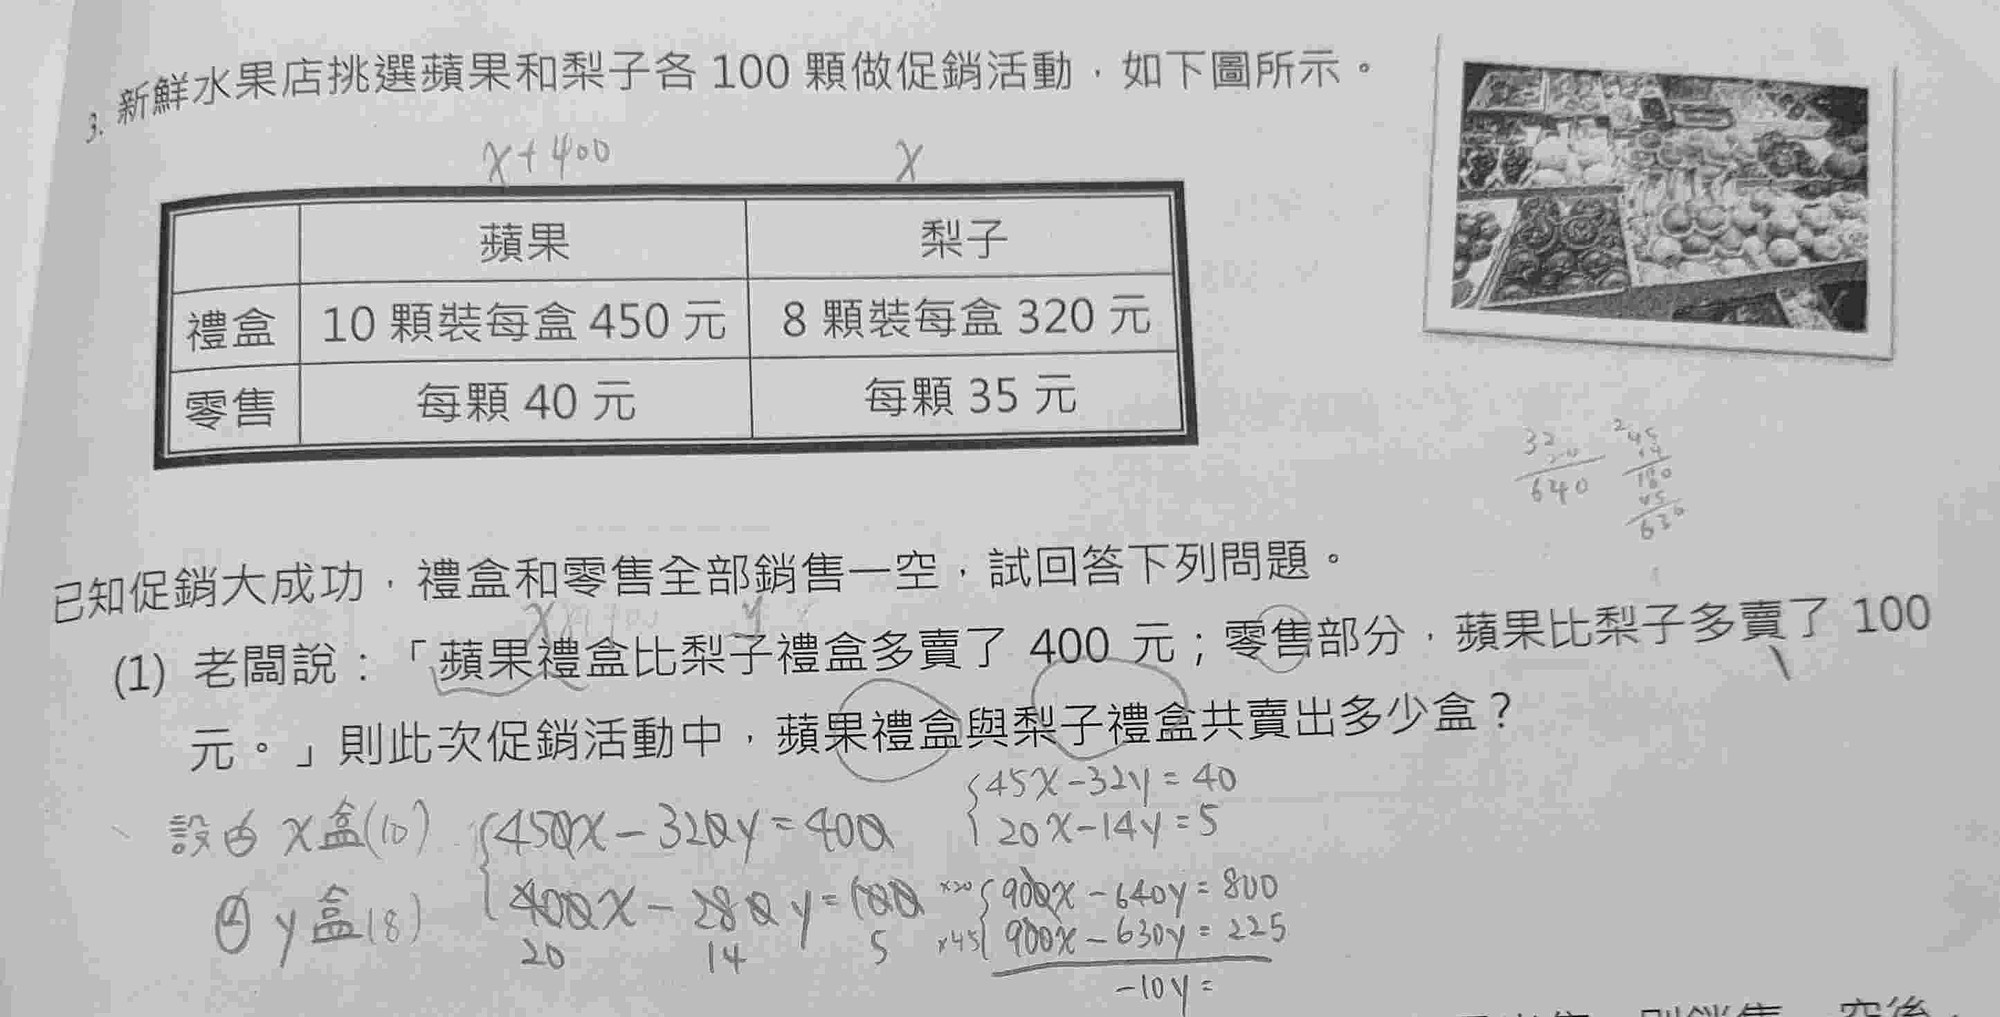 3. 新鮮水果店挑選蘋果和梨子各 100 顆做促銷活動，如下圖所示。
x+400 x
蘋果 梨子
禮盒 10 顆裝每盒 450 元 8 顆裝每盒 320 元
零售 每顆 40 元 每顆 35 元
32
20
640
2
45
14
180
45
630
已知促銷大成功，禮盒和零售全部銷售一空，試回答下列問題。
x y
(1) 老闆說：「蘋果禮盒比梨子禮盒多賣了 400 元；零售部分，蘋果比梨子多賣了 100
元。」則此次促銷活動中，蘋果禮盒與梨子禮盒共賣出多少盒？
設 x盒(10)
y盒(8)
450x-320y=400
400x-280y=100
20 14 5
45x-32y=40
20x-14y=5
x20 900x-640y=800
x45 900x-630y=225
-10y=